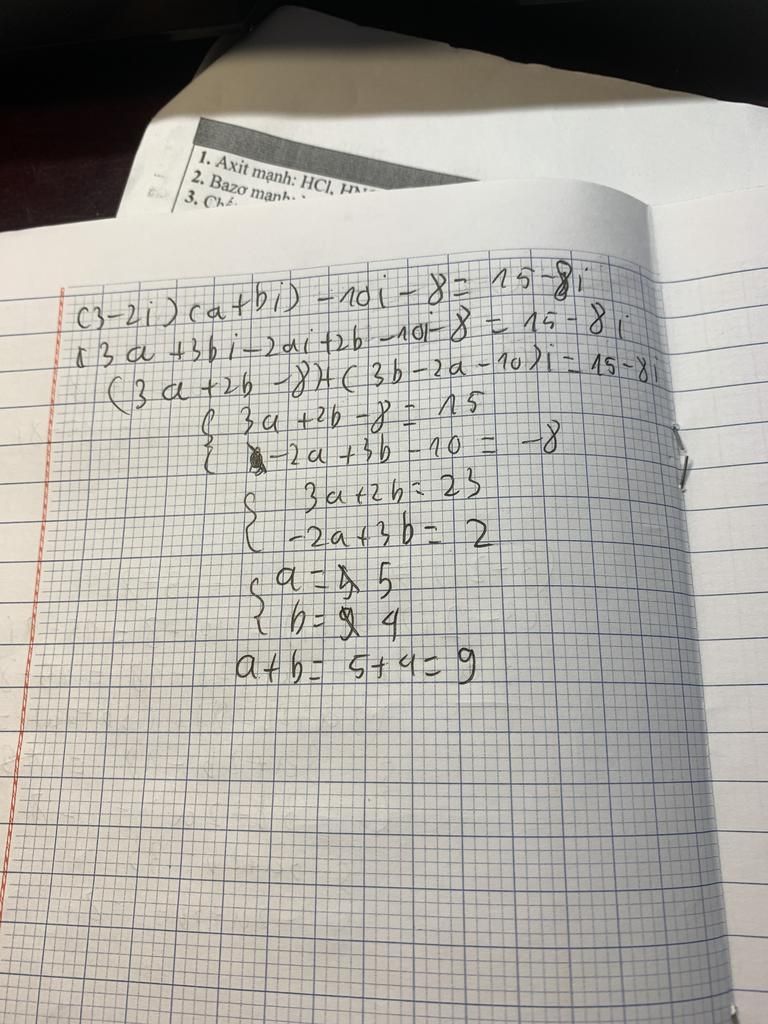 1. Axit mạnh: HCl,
2. Bazơ mạnh:
3.
(3-2i)(a+bi) -10i -8= 15-8i
(3a +3bi -2ai +2b -10i-8 = 15-8i
(3a+2b -8)+(3b-2a-10)i = 15-8i
{ 3a+2b-8= 15
{ -2a+3b-10 = -8
{ 3a+2b= 23
{ -2a+3b= 2
{ a= 5
{ b= 4
a+b= 5+4= 9